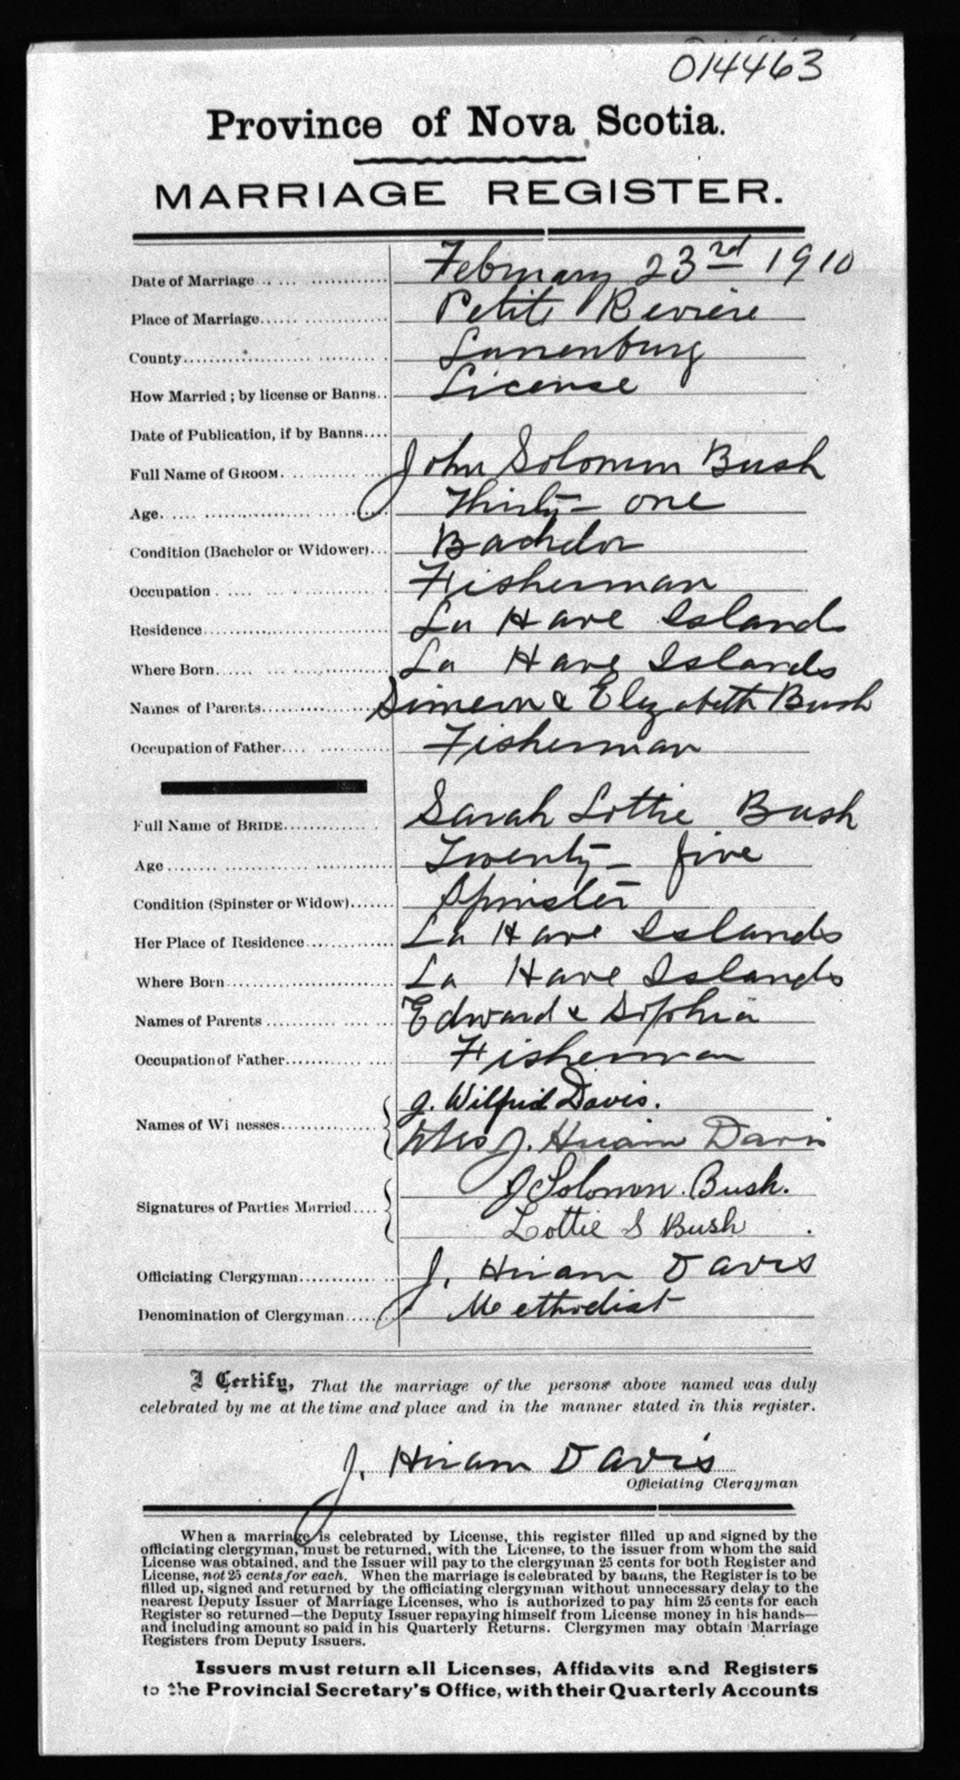 014463
Province of Nova Scotia.
MARRIAGE REGISTER.
Date of Marriage February 23rd 1910
Place of Marriage Petite Riviere
County Lunenburg
How Married; by license or Banns License
Date of Publication, if by Banns
Full Name of GROOM John Solomon Bush
Age Thirty-one
Condition (Bachelor or Widower) Bachelor
Occupation Fisherman
Residence La Have Islands
Where Born La Have Islands
Names of Parents Simeon & Elizabeth Bush
Occupation of Father Fisherman
Full Name of BRIDE Sarah Lottie Bush
Age Twenty-five
Condition (Spinster or Widow) Spinster
Her Place of Residence La Have Islands
Where Born La Have Islands
Names of Parents Edward & Sophia
Occupation of Father Fisherman
J. Wilfrid Davis.
Names of Wi nesses Mrs J. Hiram Davis
J Solomon. Bush.
Signatures of Parties Married Lottie S Bush
Officiating Clergyman J. Hiram Davis
Denomination of Clergyman Methodist
I Certify, That the marriage of the persons above named was duly
celebrated by me at the time and place and in the manner stated in this register.
J. Hiram Davis
Officiating Clergyman
When a marriage is celebrated by License, this register filled up and signed by the
officiating clergyman, must be returned, with the License, to the issuer from whom the said
License was obtained, and the Issuer will pay to the clergyman 25 cents for both Register and
License, not 25 cents for each. When the marriage is celebrated by banns, the Register is to be
filled up, signed and returned by the officiating clergyman without unnecessary delay to the
nearest Deputy Issuer of Marriage Licenses, who is authorized to pay him 25 cents for each
Register so returned—the Deputy Issuer repaying himself from License money in his hands—
and including amount so paid in his Quarterly Returns. Clergymen may obtain Marriage
Registers from Deputy Issuers.
Issuers must return all Licenses, Affidavits and Registers
to the Provincial Secretary's Office, with their Quarterly Accounts